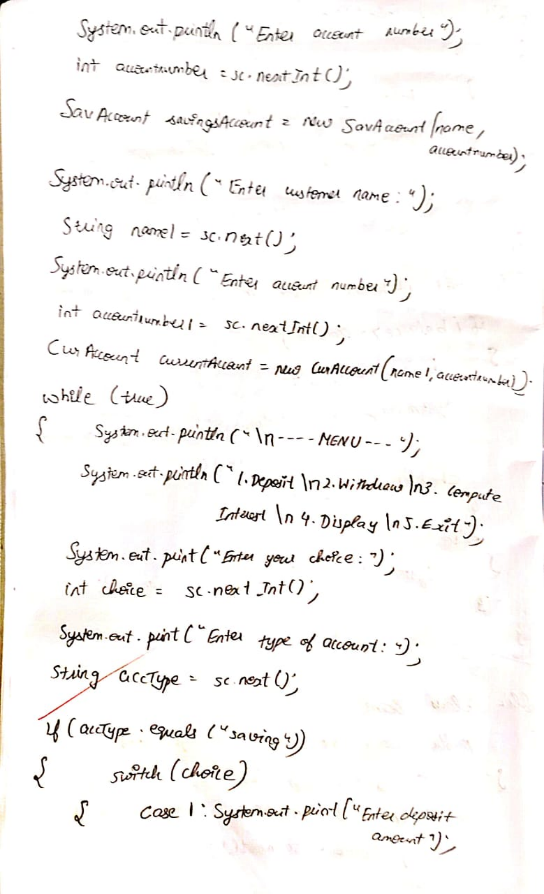 System.out.println ("Enter account number");
int accountnumber = sc.nextInt();
SavAccount savingsAccount = new SavAccount(name,
accountnumber);
System.out.println ("Enter customer name : ");
String name1 = sc.next();
System.out.println ("Enter account number");
int accountnumber1 = sc.nextInt();
CurAccount currentAccount = new CurAccount(name1, accountnumber1);
while (true)
{ System.out.println ("\n---- MENU---");
System.out.println ("1.Deposit \n2.Withdraw \n3. Compute
Interest \n 4. Display \n5.Exit");
System.out.print ("Enter your choice : ");
int choice = sc.next Int();
System.out.print ("Enter type of account: ");
String accType = sc.next();
if (accType.equals ("saving"))
{ switch (choice)
{ case 1 : System.out.print ("Enter deposit
amount");